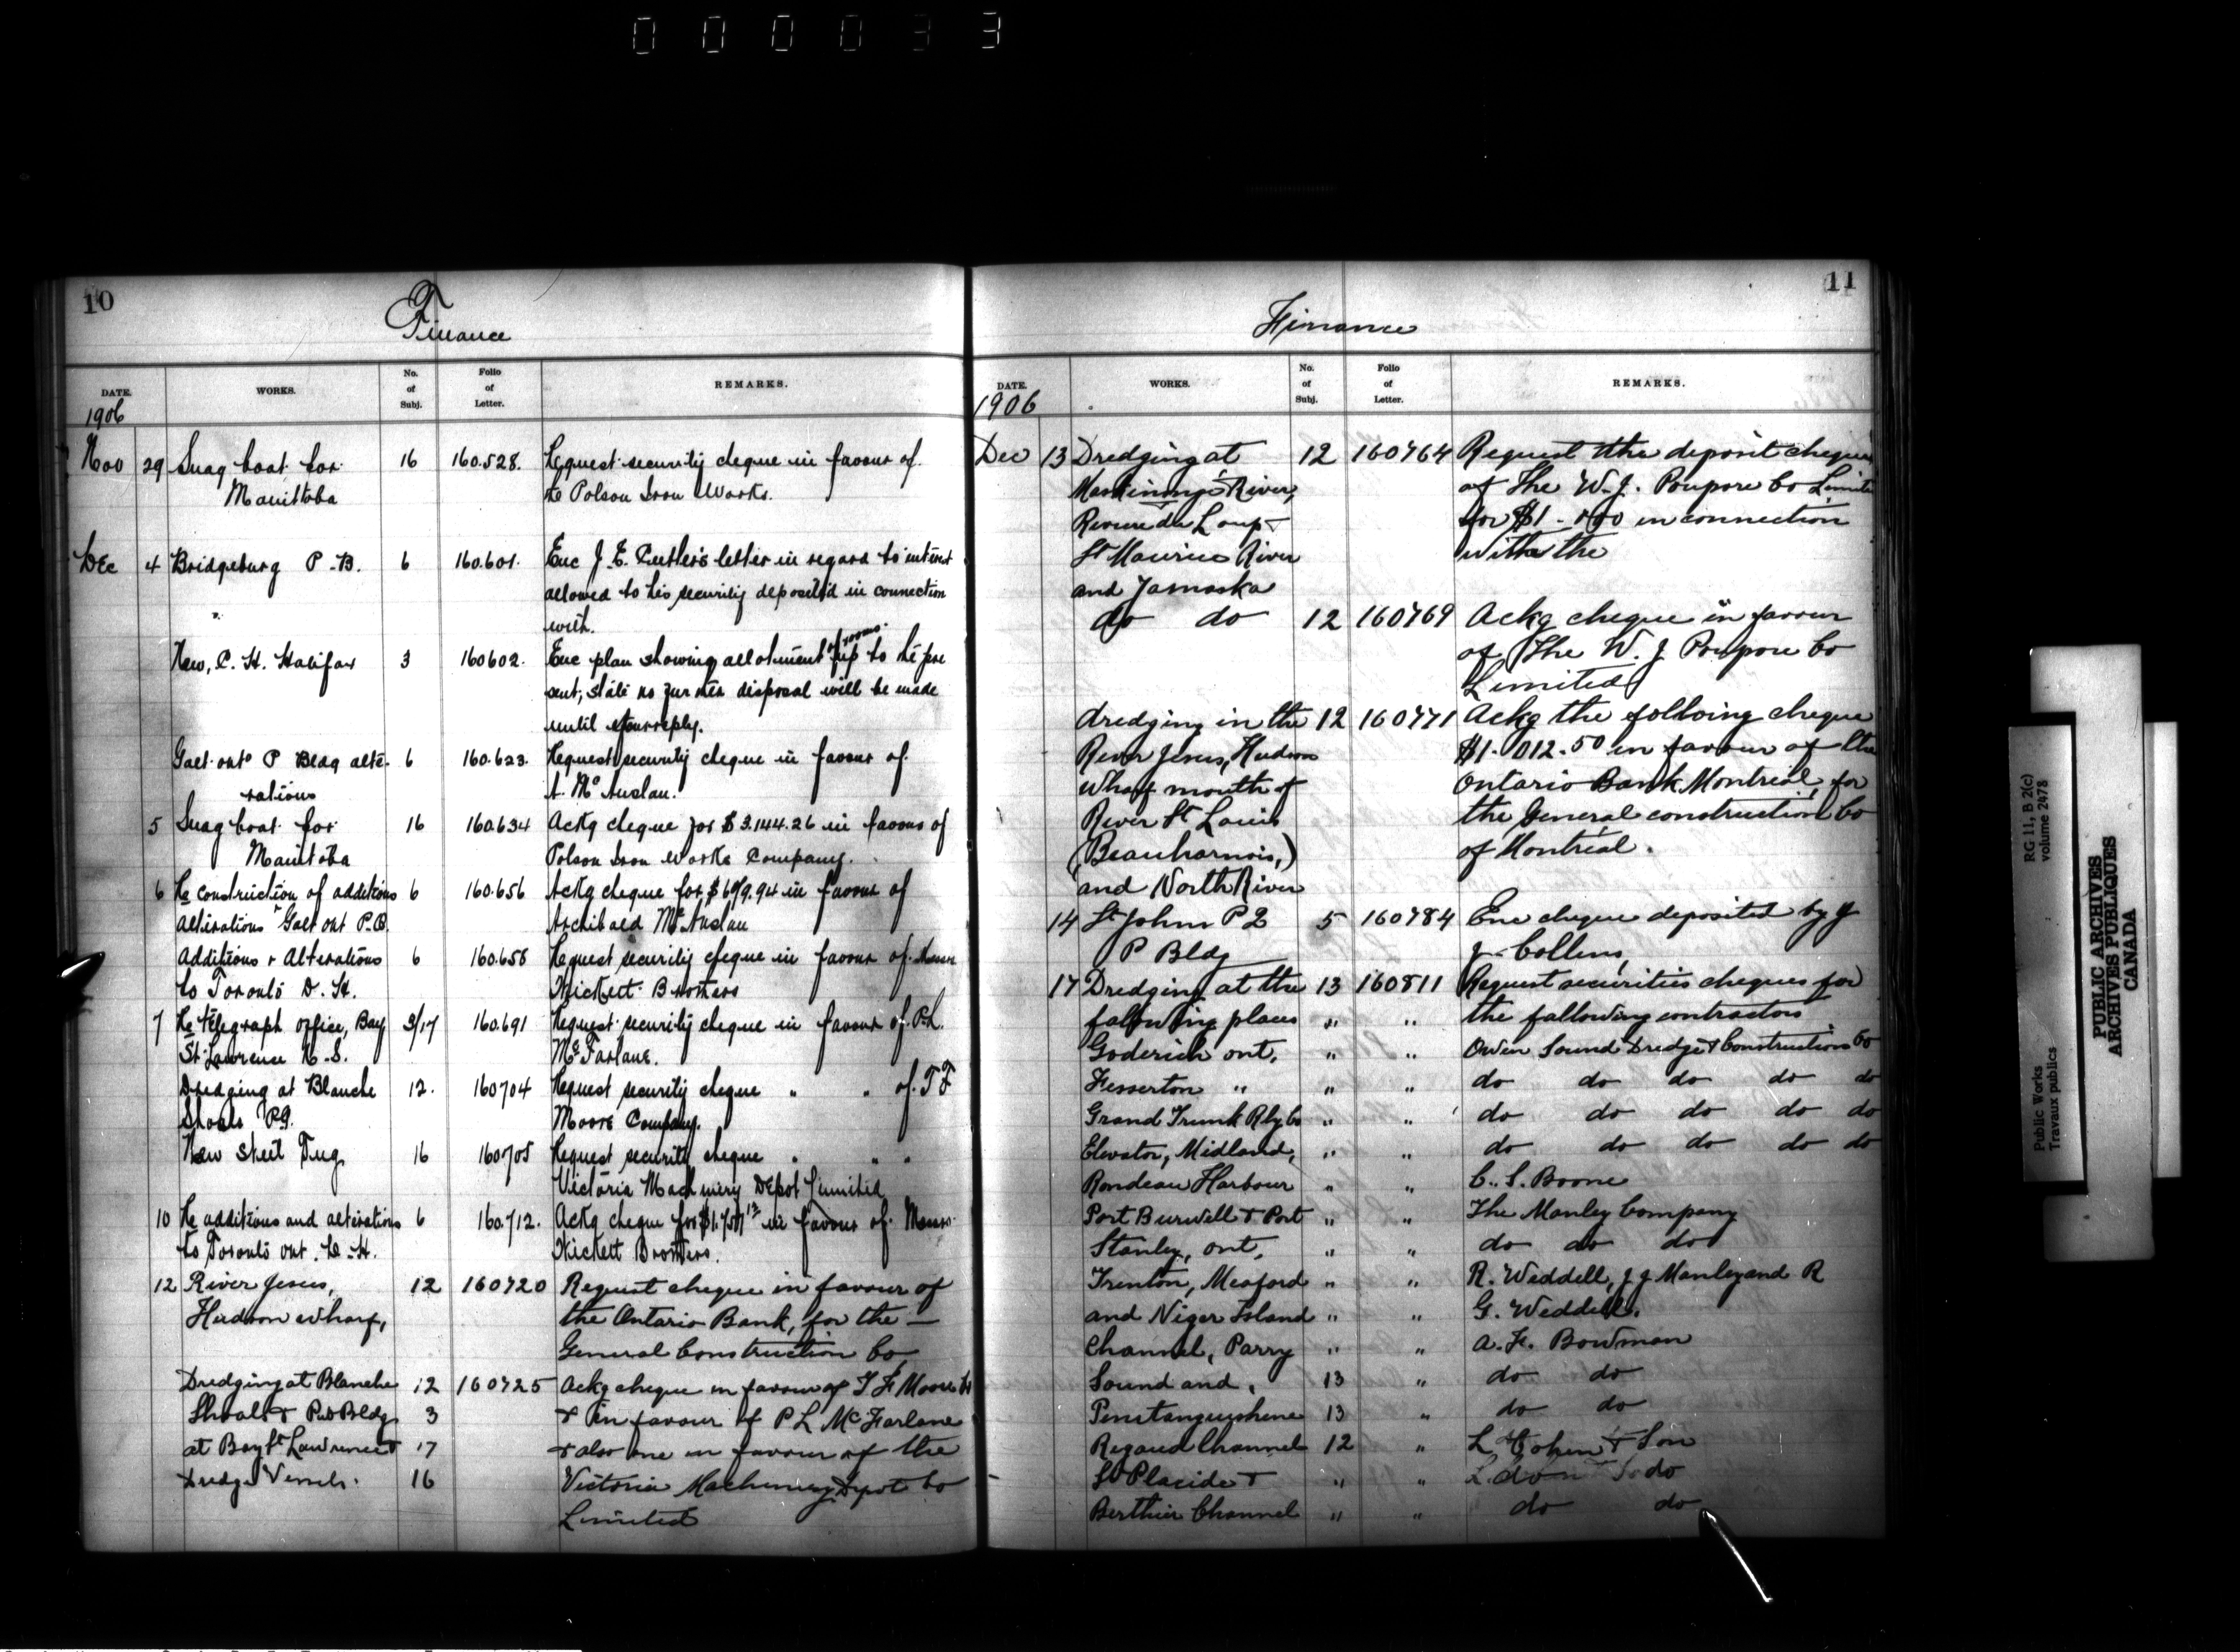 0 0 0 0 3 3
10
Finance
DATE. WORKS. No. of Subj. Folio of Letter. REMARKS.
1906
Nov 29 Snag boat for 16 160.528. Request security cheque in favour of
Manitoba the Polson Iron Works.
Dec 4 Bridgeburg P-B. 6 160.601. Enc J. E. Cutler's letter in regard to interest
allowed to his security deposited in connection
with.
New, C. H. Halifax 3 160602. Enc plan showing allotment of rooms up to the pre
sent, state no further disposal will be made
until your reply.
Galt onto P Bldg alte- 6 160.623. Request security cheque in favour of
rations A. Mc Auslan.
5 Snag boat for 16 160.634 Ackg cheque for $3.144.26 in favour of
Manitoba Polson Iron Works Company.
6 Re construction of additions 6 160.656 Ackg cheque for $ 9.94 in favour of
Alterations Galt ont P.B. Archibald Mc Auslan
Additions + Alterations 6 160.658 Request security cheque in favour of Messrs
to Toronto D. H. Hickett Brothers
7 Re telegraph office, Bay 3/17 160.691 Request security cheque in favour of P.L.
St Lawrence N-S. Mc Farlane.
Dredging at Blanche 12. 160704 Request security cheque " " of T F
Shoals P.Q. Moore Company.
New Steel Tug 16 160705 Request security cheque " " "
Victoria Machinery Depot Limited
10 Re additions and alterations 6 160.712. Ackg cheque for in favour of Messrs
to Toronto ont. C-H. Hickett Brothers.
12 River Jesus, 12 160720 Request cheque in favour of
Hudson wharf, the Ontario Bank, for the —
General Construction Co
Dredging at Blanche 12 160725 Ackg cheque in favour of T F Moore Co
Shoals + Pub Bldg 3 + in favour of P L McFarlane
at Bay St Lawrence + 17 + also one in favour of the
Dredge Vessels. 16 Victoria Machinery Depot Co
Limited
11
Finance
DATE. WORKS. No. of Subj. Folio of Letter. REMARKS.
1906
Dec 13 Dredging at 12 160764 Request the deposit cheque
River, of The W. J. Poupore Co Limite
Riviere du Loup + for in connection
St Maurice River with the
and Yamaska
do do 12 160769 Ackg cheque in favour
of The W. J Poupore Co
Limited
dredging in the 12 160771 Ackg the folloing cheque
River Jesus, Hudson $1.012.50 in favour of the
Wharf mouth of Ontario Bank Montreal, for
River St Louis the General construction Co
(Beauharnois,) of Montreal.
and North River
14 St Johns P Q 5 160784 Enc cheque deposited by J
P Bldg J- Collens,
17 Dredging at the 13 160811 Request securities cheques for
following places " " the following contractors
Goderich ont, " " Owen Sound Dredge + Construction Co
Fesserton " " " do do do do do
Grand Trunk Rly Co " " do do do do do
Elevator, Midland, " " do do do do do
Rondeau Harbour " " C. S. Boone
Port Burwell + Port " " The Manley Company
Stanley, ont, " " do do do
Trenton, Meaford " " R. Weddell, J J Manley and R
and Niger Island " " G. Weddell.
Channel, Parry " " A. F. Bowman
Sound and, 13 " do do
Penetanguishene 13 " do do
Rigaud Channel 12 " L Cohen + Son
St Placide + " " do do
Berthier Channel " " do do
RG 11, B 2(c)
volume 2473
Public Works
Travaux publics
PUBLIC ARCHIVES
ARCHIVES PUBLIQUES
CANADA